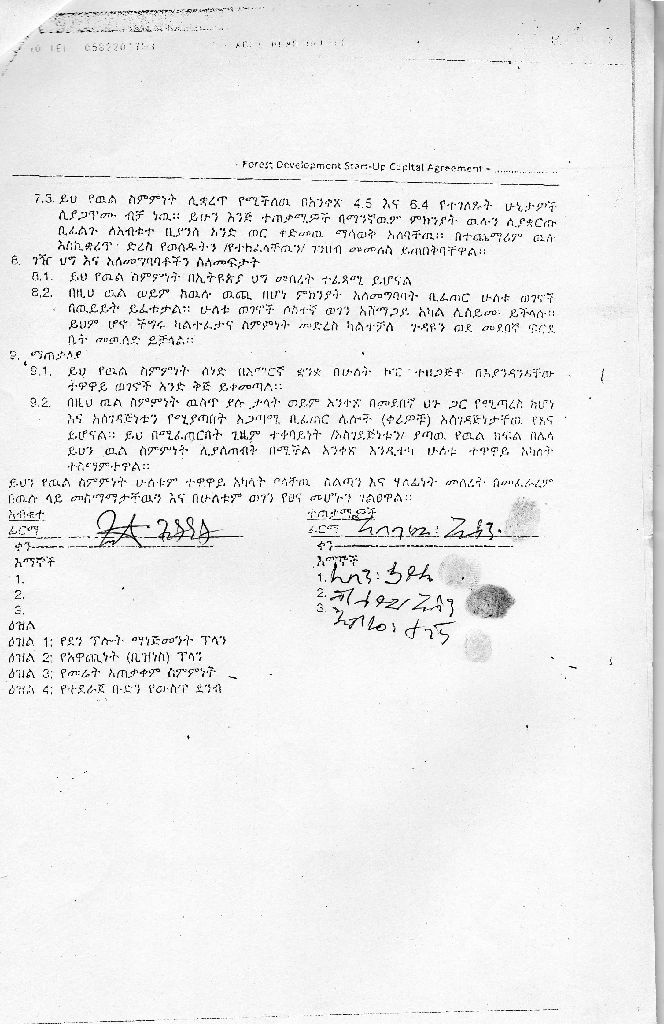 TEL 0582201793
Forest Development Start-Up Capital Agreement -
7.3. ይህ የዉል ስምምነት ሊቋረጥ የሚችለዉ በአንቀጽ 4.5 እና 6.4 የተገለጹት ሁኔታዎች
ሲያጋጥሙ ብቻ ነዉ። ይሁን እንጅ ተጠቃሚዎች በማንኛዉም ምክንያት ዉሉን ሊያቋርጡ
ቢፈልጉ ለአብቁተ ቢያንስ አንድ ወር ቀድመዉ ማሳወቅ አለባቸዉ። በተጨማሪም ዉሉ
እስኪቋረጥ ድረስ የወሰዱትን /የተከፈላቸዉን/ ገንዘብ መመለስ ይጠበቅባቸዋል።
8. ገዥ ህግ እና አለመግባባቶችን ስለመፍታት
8.1. ይህ የዉል ስምምነት በኢትዮጵያ ህግ መሰረት ተፈጻሚ ይሆናል
8.2. በዚህ ዉል ወይም ከዉሉ ዉጪ በሆነ ምክንያት አለመግባባት ቢፈጠር ሁለቱ ወገኖች
በዉይይት ይፈቱታል። ሁለቱ ወገኖች ሶስተኛ ወገን አስማጋይ አካል ሊሰይሙ ይችላሉ።
ይህም ሆኖ ችግሩ ካልተፈታና ስምምነት መድረስ ካልተቻለ ጉዳዩን ወደ መደበኛ ፍርድ
ቤት መዉሰድ ይቻላል።
9. ማጠቃለያ
9.1. ይህ የዉል ስምምነት ሰነድ በአማርኛ ቋንቋ በሁለት ኮፒ ተዘጋጅቶ በእያንዳንዳቸዉ
ተዋዋይ ወገኖች አንድ ቅጅ ይቀመጣል።
9.2. በዚህ ዉል ስምምነት ዉስጥ ያሉ ቃላት ወይም አንቀጽ በመደበኛ ህጉ ጋር የሚጣረስ ከሆነ
እና አስገዳጅነቱን የሚያጣበት አጋጣሚ ቢፈጠር ሌሎች (ቀሪዎች) አስገዳጅነታቸዉ የጸና
ይሆናል። ይህ በሚፈጠርበት ጊዜም ተቀባይነት /አስገዳጅነቱን/ ያጣዉ የዉል ክፍል በሌላ
ይህን ዉል ስምምነት ሊያስጠብት በሚችል አንቀጽ እንዲተካ ሁለቱ ተዋዋይ አካላት
ተስማምተዋል።
ይህን የዉል ስምምነት ሁለቱም ተዋዋይ አካላት ባላቸዉ ስልጣን እና ሃላፊነት መሰረት በመፈራረም
በዉሉ ላይ መስማማታቸዉን እና በሁለቱም ወገን የጸና መሆኑን ገልፀዋል።
አብቁተ
ተጠቃሚዎች
ፊርማ
ፊርማ
ቀን
ቀን
እማኞች
እማኞች
1.
1.
2.
2.
3.
3.
ዕዝል
ዕዝል 1: የደን ፕሎት ማነጅመንት ፕላን
ዕዝል 2: የአዋጪነት (ቢዝነስ) ፕላን
ዕዝል 3: የመሬት አጠቃቀም ስምምነት
ዕዝል 4: የተደራጀ ቡድን የውስጥ ደንብ